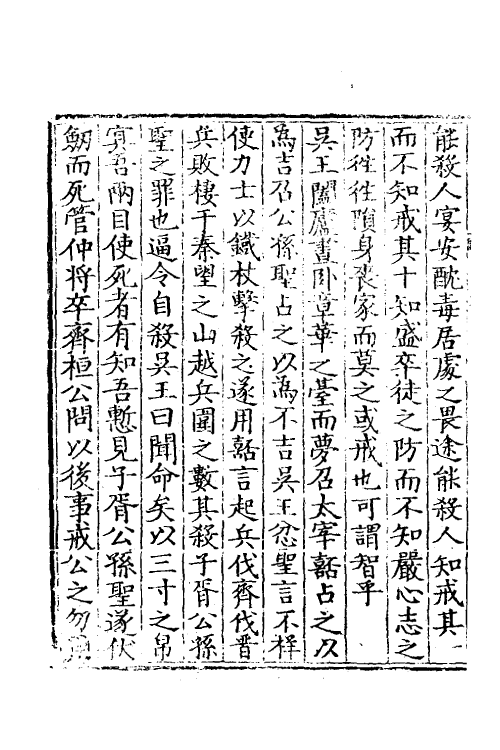 能殺人宴安酖毒居處之畏途能殺人知戒其一
而不知戒其十知盛卒徒之防而不知嚴心志之
防徃徃隕身喪家而莫之或戒也可謂智乎
吳王闔廬晝卧章華之臺而夢召太宰嚭占之以
為吉召公孫聖占之以為不吉吳王忿聖言不祥
使力士以鐵杖擊殺之遂用嚭言起兵伐齊伐晉
兵敗棲于秦望之山越兵圍之數其殺子胥公孫
聖之罪也逼令自殺吳王曰聞命矣以三寸之帛
㝠吾兩目使死者有知吾慙見子胥公孫聖遂伏
劒而死管仲将卒齊桓公問以後事戒公之勿